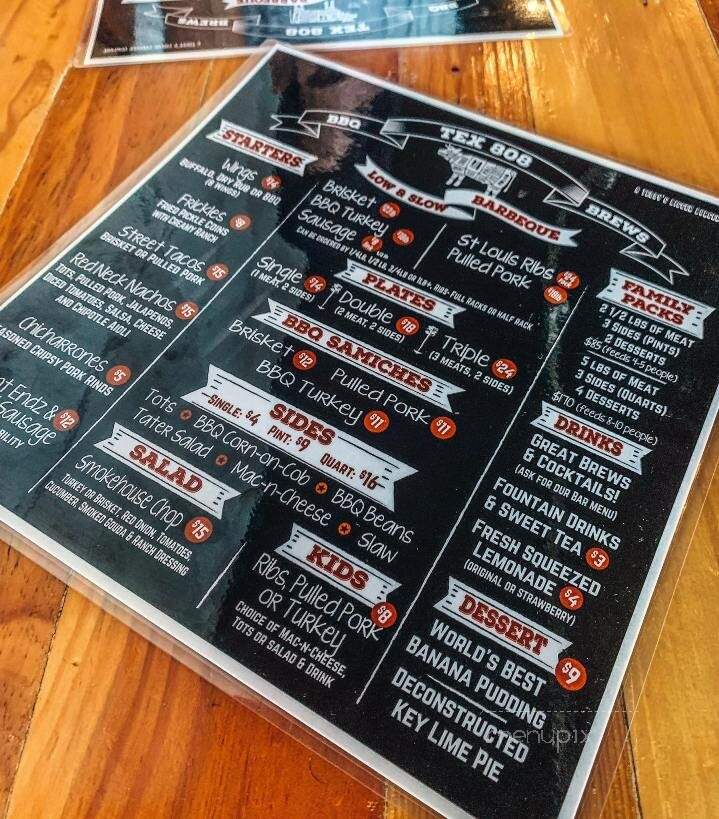 TEX 808
BREWS
BBQ
TEX 808
BREWS
STARTERS
Wings
BUFFALO, DRY RUB OR BBQ
(8 WINGS)
Frickles
FRIED PICKLE COINS
WITH CREAMY RANCH
Street Tacos $15
BRISKET OR PULLED PORK
RedNeck Nachos $15
TOTS, PULLED PORK, JALAPENOS,
DICED TOMATOES, SALSA, CHEESE
AND CHIPOTLE AIOLI
Chicharrones $5
CRIPSY PORK RINDS
Endz &
Sausage $12
SALAD
Smokehouse Chop $15
TURKEY OR BRISKET, RED ONION, TOMATOES
CUCUMBER, SMOKED GOUDA & RANCH DRESSING
LOW & SLOW
BARBEQUE
Brisket
BBQ Turkey
Sausage
CAN BE ORDERED BY 1/4LB, 1/2 LB, 3/4LB OR 1LB+. RIBS-FULL RACKS OR HALF RACK
St Louis Ribs
Pulled Pork
PLATES
Single $14
(1 MEAT, 2 SIDES)
Double $18
(2 MEAT, 2 SIDES)
Triple $24
(3 MEATS, 2 SIDES)
BBQ SAMICHES
Brisket $12
Pulled Pork $11
BBQ Turkey $11
SIDES
SINGLE: $4 PINT: $9 QUART: $16
Tots BBQ Corn-on-Cob BBQ Beans
Tater Salad Mac-n-Cheese Slaw
KIDS
Ribs, Pulled Pork
or Turkey $8
CHOICE OF MAC-N-CHEESE,
TOTS OR SALAD & DRINK
FAMILY
PACKS
2 1/2 LBS OF MEAT
3 SIDES (PINTS)
2 DESSERTS
$85 (feeds 4-5 people)
5 LBS OF MEAT
3 SIDES (QUARTS)
4 DESSERTS
$170 (feeds 8-10 people)
DRINKS
GREAT BREWS
& COCKTAILS!
(ASK FOR OUR BAR MENU)
FOUNTAIN DRINKS
& SWEET TEA $3
FRESH SQUEEZED
LEMONADE $4
(ORIGINAL OR STRAWBERRY)
DESSERT $9
WORLD'S BEST
BANANA PUDDING
DECONSTRUCTED
KEY LIME PIE
menupix